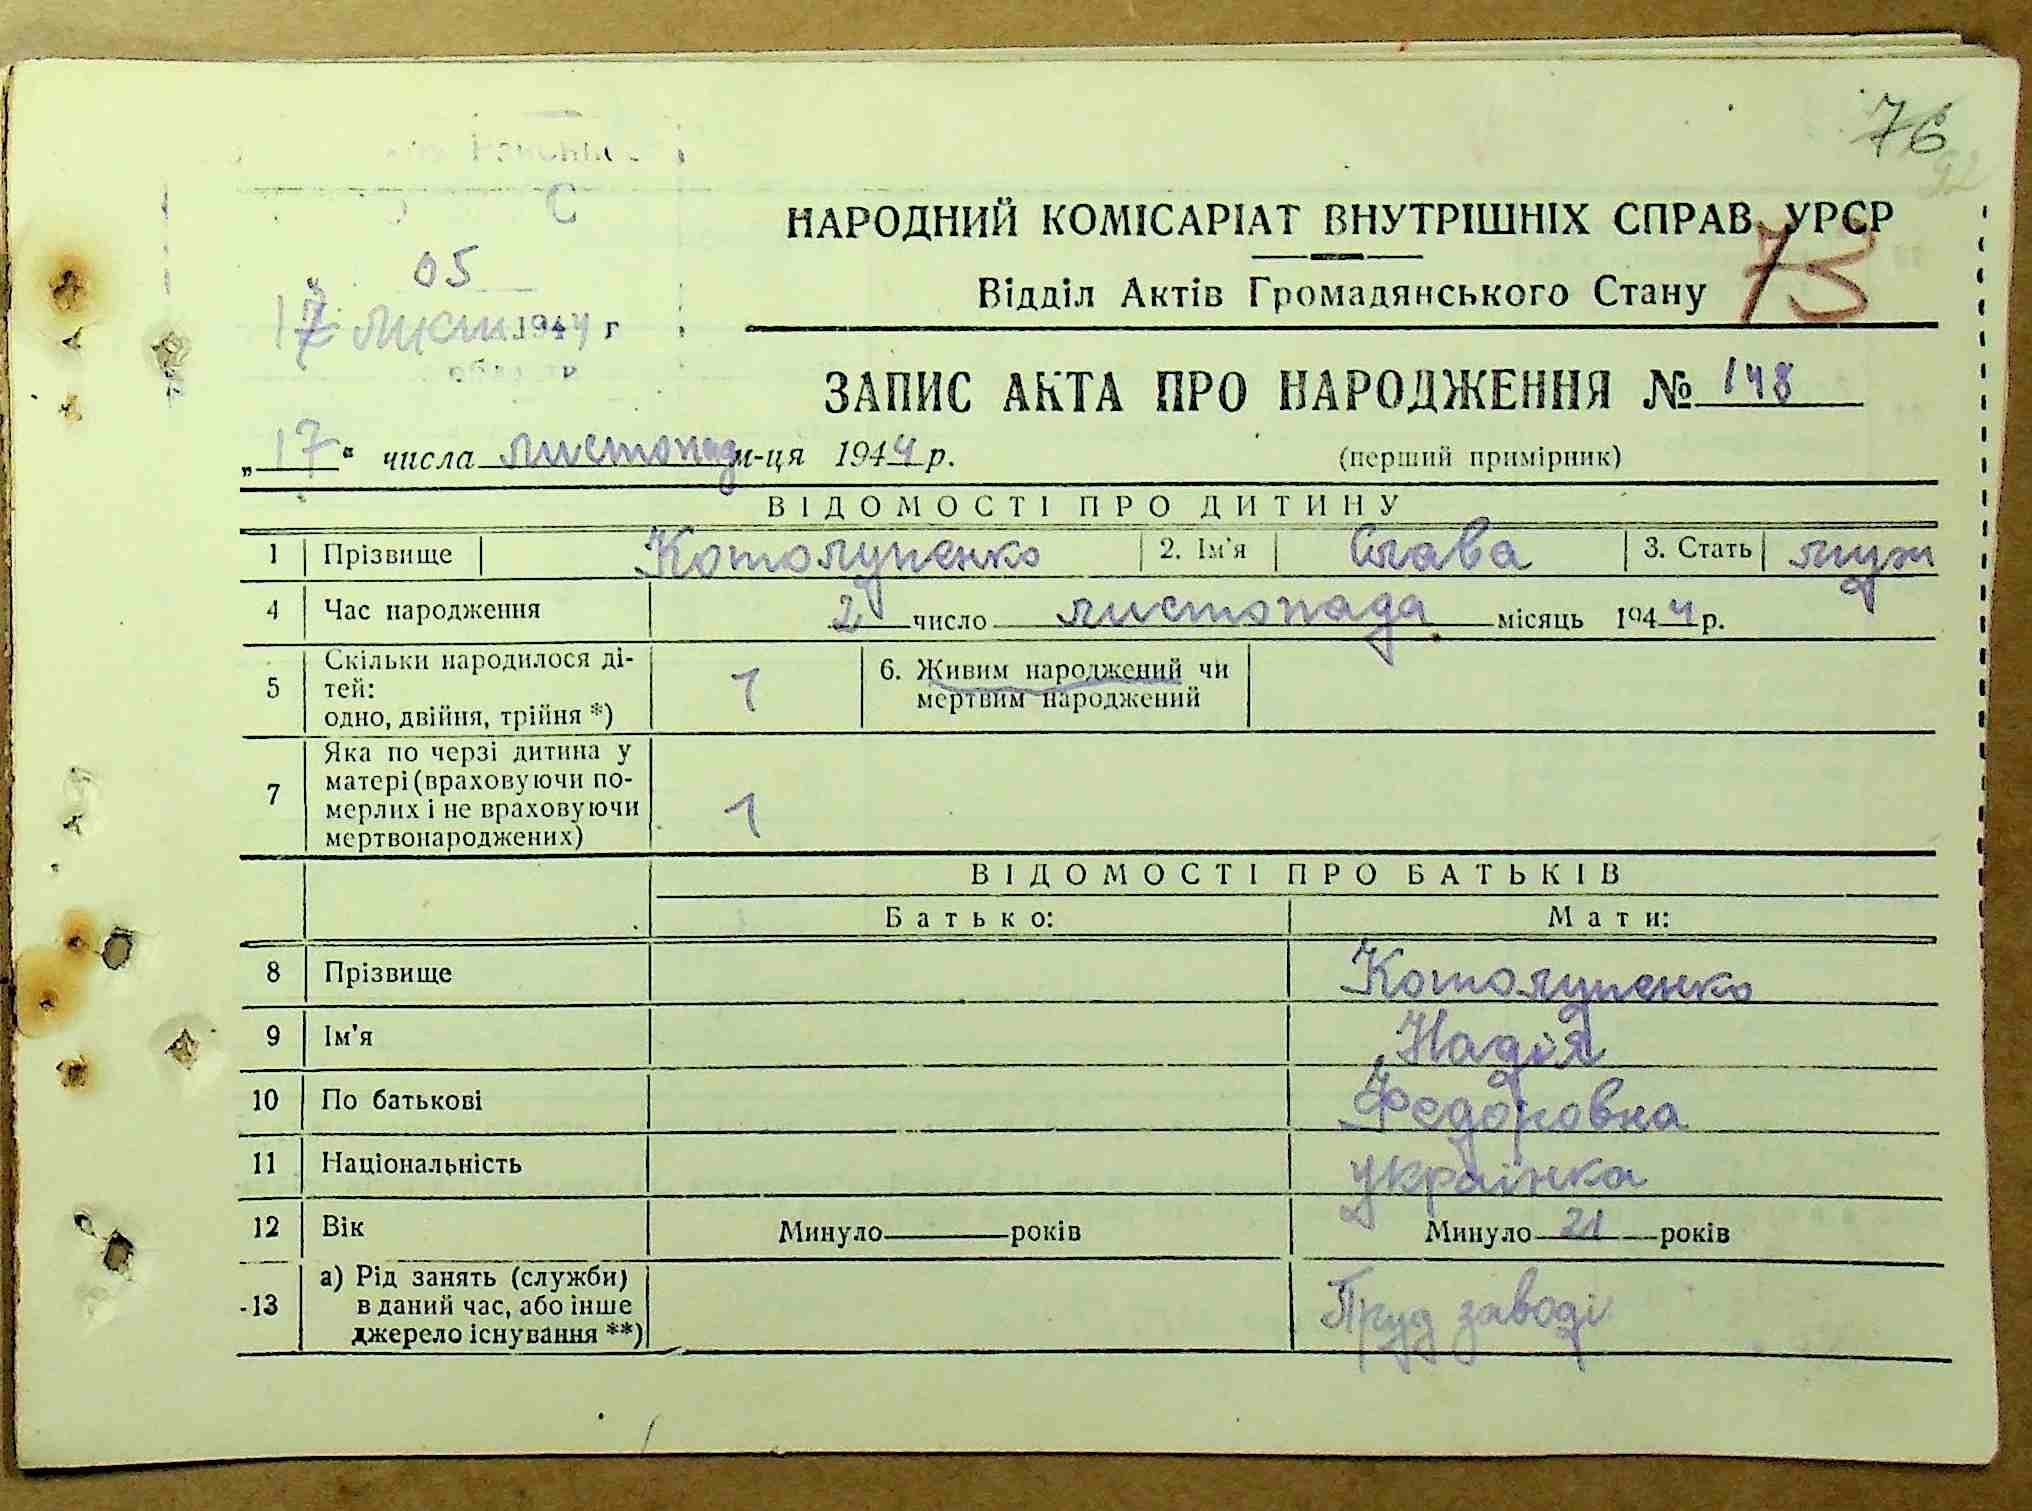 76
НАРОДНИЙ КОМІСАРІАТ ВНУТРІШНІХ СПРАВ УРСР
73
Відділ Актів Громадянського Стану
05
17 лист 1944 г
ЗАПИС АКТА ПРО НАРОДЖЕННЯ № 148
„17“ числа листопад м-ця 1944 р.
(перший примірник)
ВІДОМОСТІ ПРО ДИТИНУ
1 Прізвище Котолупенко 2. Ім'я Слава 3. Стать муж
4 Час народження 2 число листопада місяць 1944 р.
5 Скільки народилося ді-
тей:
одно, двійня, трійня *)
1
6. Живим народжений чи
мертвим народжений
7 Яка по черзі дитина у
матері (враховуючи по-
мерлих і не враховуючи
мертвонароджених)
1
ВІДОМОСТІ ПРО БАТЬКІВ
Батько: Мати:
8 Прізвище Котолупенко
9 Ім'я Надія
10 По батькові Федоровна
11 Національність українка
12 Вік Минуло років Минуло 21 років
13 а) Рід занять (служби)
в даний час, або інше
джерело існування **)
заводі